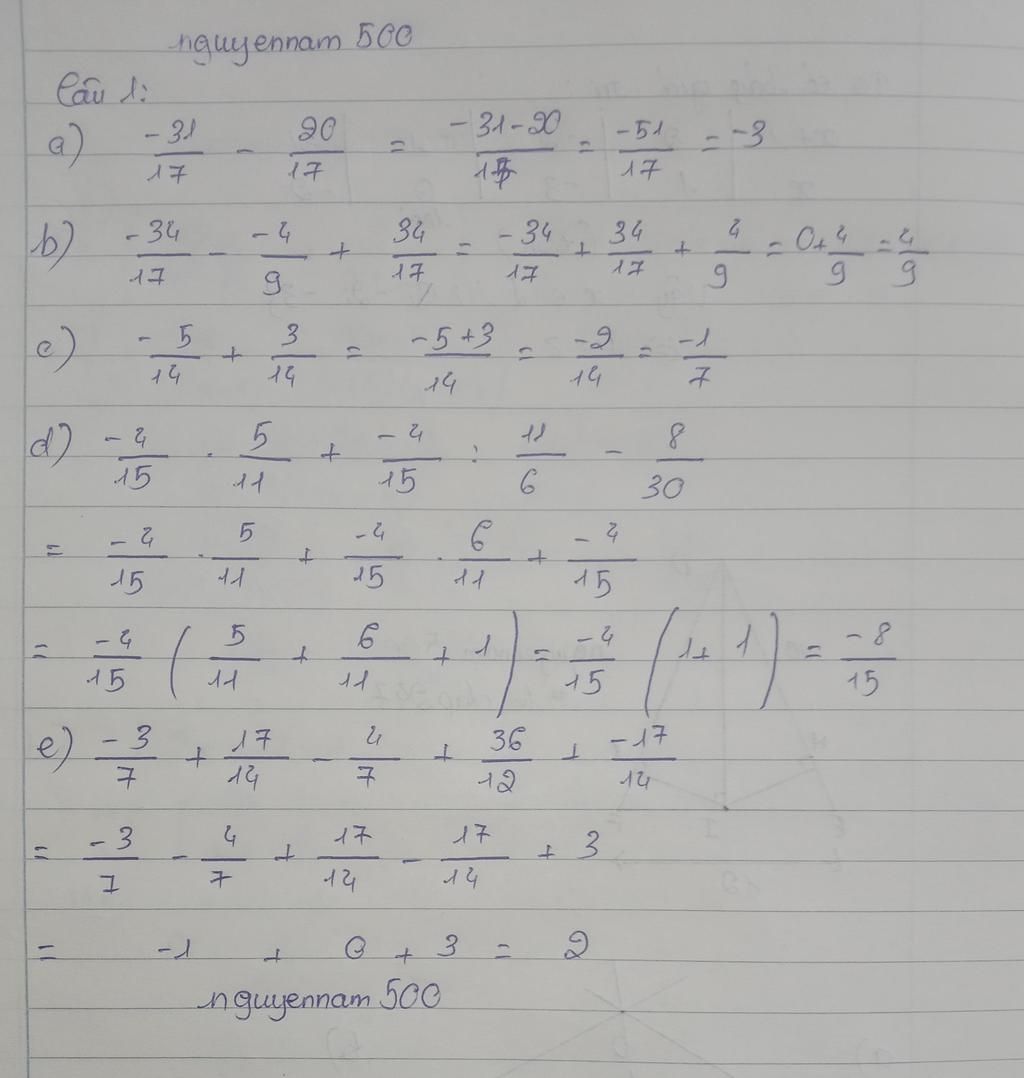 nguyennam 500
Câu 1:
a) -31/17 - 20/17 = -31-20/17 = -51/17 = -3
b) -34/17 - -4/9 + 34/17 = -34/17 + 34/17 + 4/9 = 0+4/9 = 4/9
c) -5/14 + 3/14 = -5+3/14 = -2/14 = -1/7
d) -4/15 . 5/11 + -4/15 : 11/6 - 8/30
= -4/15 . 5/11 + -4/15 . 6/11 + -4/15
= -4/15 (5/11 + 6/11 + 1) = -4/15 (1+1) = -8/15
e) -3/7 + 17/14 - 4/7 + 36/12 + -17/14
= -3/7 - 4/7 + 17/14 - 17/14 + 3
= -1 + 0 + 3 = 2
nguyennam 500